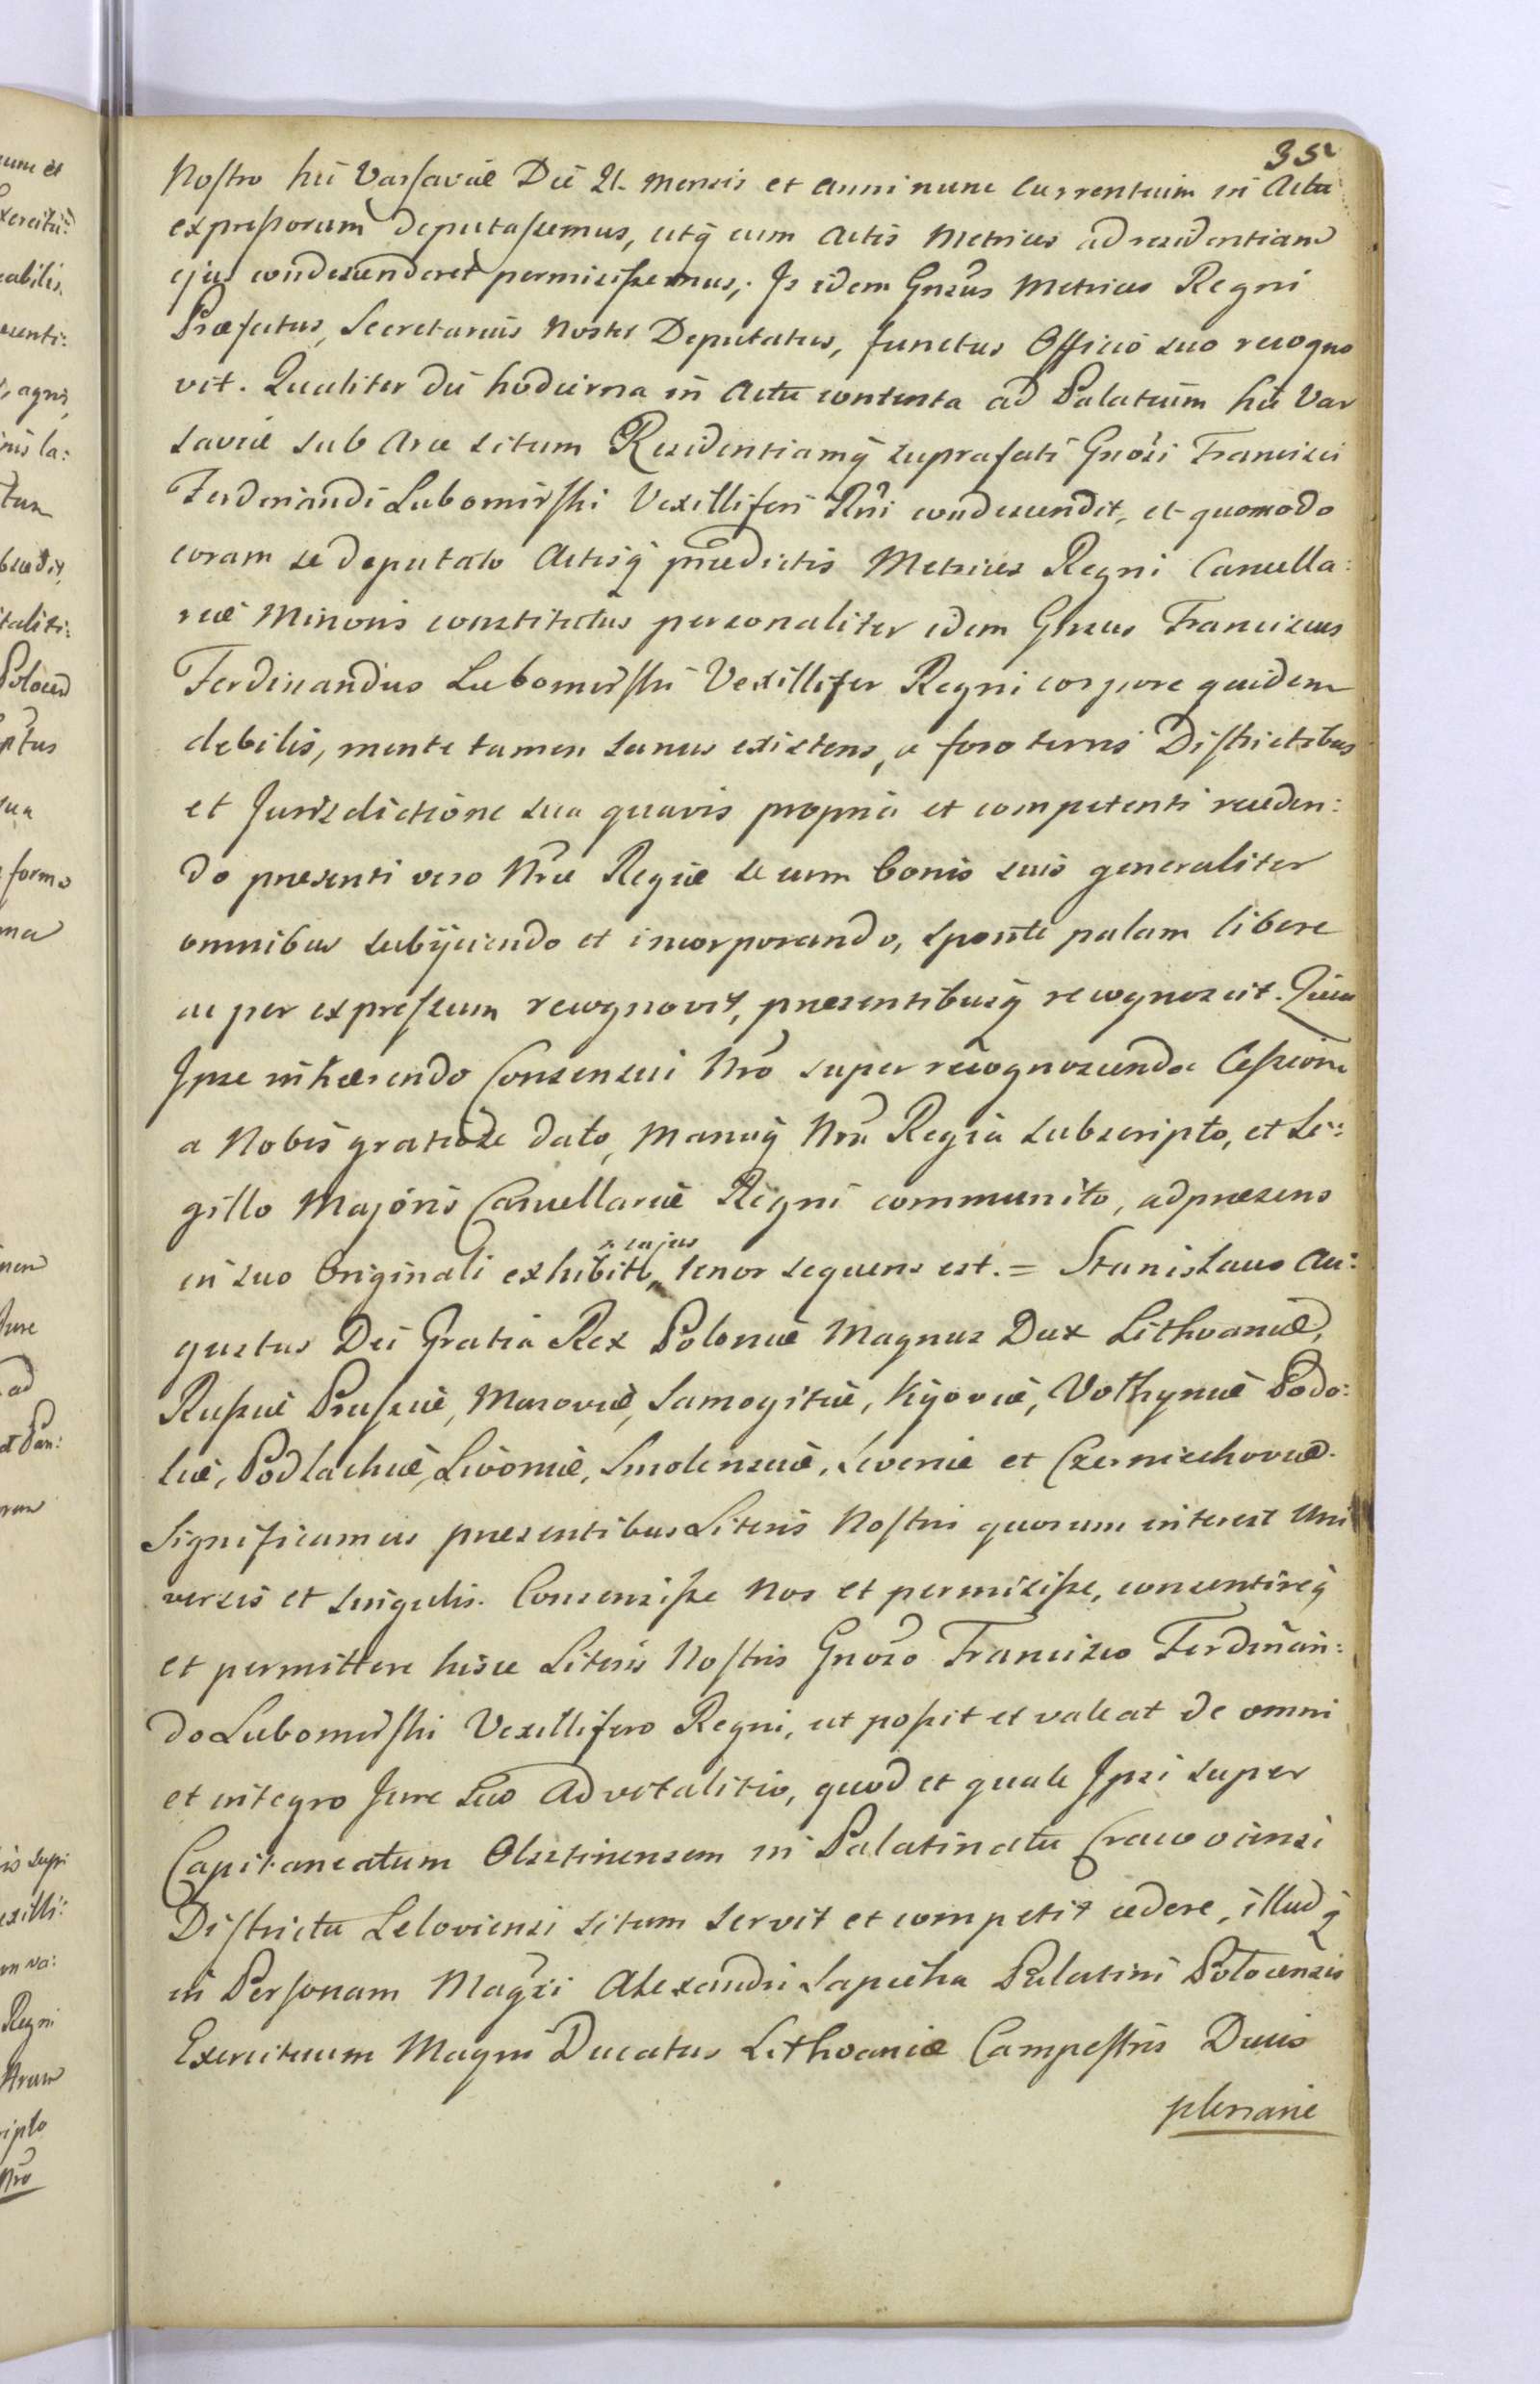 35
Nostro hic Varsaviæ Die 21. mensis et anni nunc currentium in Actu
expressorum deputassemus, utq̃ cum Actis Metrices ad residentiam
ejus condescenderet permisissemus; Is idem Gnsũs Metrices Regni
Præfectus, Secretarius Noster Deputatus, functus Officio suo recogno
vit. Qualiter die hodierna in Actu contenta ad Palatium hic Var
saviæ sub Arce situm Residentiamq̃ suprafati Gnõsi Francisci
Ferdinandi Lubomirski Vexilliferi Rñi condescendit, et quomodo
coram se deputato Actisq̃ prædictis Metrices Regni Cancella:
riæ Minoris constitutus personaliter idem Gnsus Franciscus
Ferdinandus Lubomirski Vexillifer Regni corpore quidem
debilis, mente tamen sanus existens, a foro terris Districtibus
et Jurisdictione sua quavis propria et competenti receden:
do præsenti vero Nræ Regiæ se cum bonis suis generaliter
omnibus subijciendo et incorporando, sponte palam libere
ac per expressum recognovit, præsentibusq̃ recognoscit. Quia
Ipse inhærendo Consensui Nrõ super recognoscenda Cessione
a Nobis gratiose dato, manuq̃ Nrã Regia subscripto, et Si:
gillo Majoris Cancellariæ Regni communito, ad præsens
cujus
in suo Originali exhibito, tenor sequens est. = Stanislaus Au:
gustus Dei Gratia Rex Poloniæ Magnus Dux Lithvaniæ,
Russiæ Prussiæ, Masoviæ, Samogitiæ, Kijoviæ, Volhyniæ Podo:
liæ, Podlachiæ, Livoniæ, Smolensciæ, Severiæ et Czerniechoviæ.
Significamus præsentibus Literis Nostris quorum interest uni
versis et singulis. Consensisse Nos et permisisse, consentireq̃
et permittere hisce Literis Nostris Gnõso Francisco Ferdinan:
do Lubomirski Vexillifero Regni, ut possit et valeat de omni
et integro Jure suo Advitalitio, quod et quale Ipsi super
Capitaneatum Olsztinensem in Palatinatu Cracoviensi
Districtu Leloviensi situm servit et competit cedere, illudq̃
in Personam Magci Alexandri Sapieha Palatini Polocensis
Exercituum Magni Ducatus Lithvaniæ Campestris Ducis
plenarie